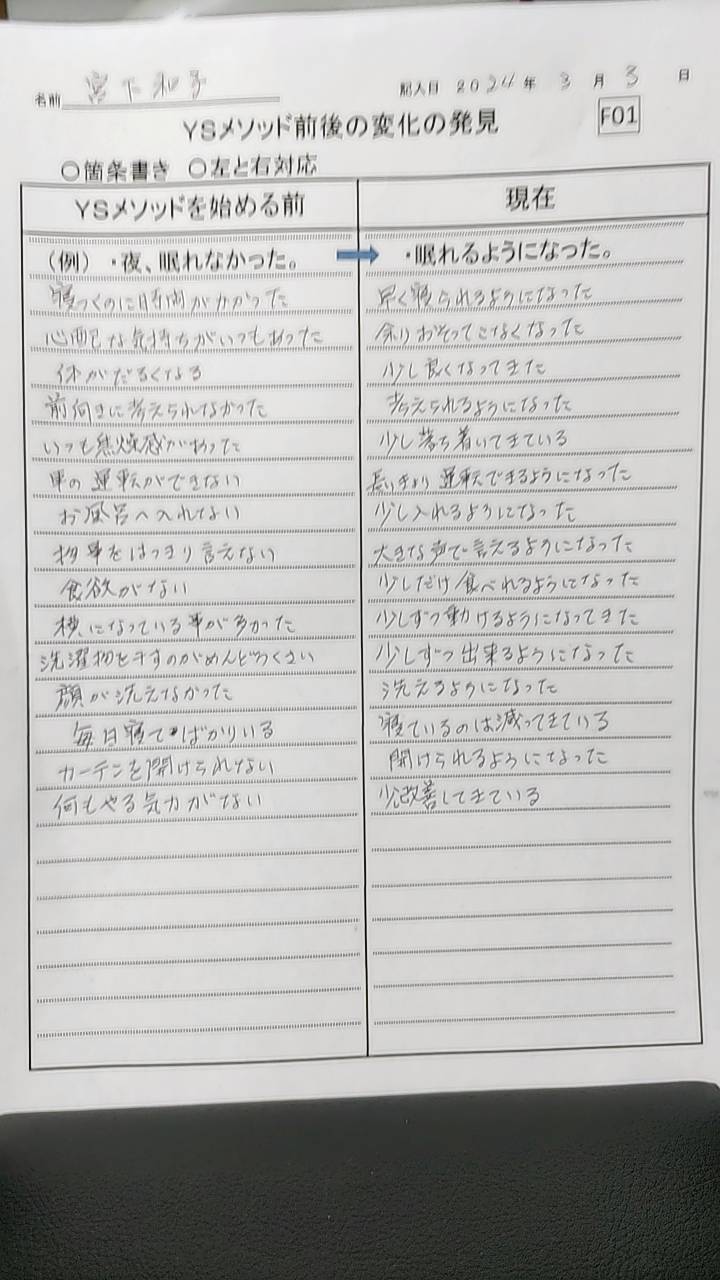 名前 宮下和子 記入日 2024年 3月 3日
YSメソッド前後の変化の発見 F01
○箇条書き ○左と右対応
YSメソッドを始める前 現在
（例）・夜、眠れなかった。 ・眠れるようになった。
寝つくのに時間がかかった 早く寝られるようになった
心配な気持ちがいつもあった 余りおそってこなくなった
体がだるくなる 少し良くなってきた
前向きに考えられなかった 考えられるようになった
いつも焦燥感があった 少し落ち着いてきている
車の運転ができない 長いきょり運転できるようになった
お風呂へ入れない 少し入れるようになった
物事をはっきり言えない 大きな声で言えるようになった
食欲がない 少しだけ食べれるようになった
横になっている事が多かった 少しずつ動けるようになってきた
洗濯物を干すのがめんどうくさい 少しずつ出来るようになった
顔が洗えなかった 洗えるようになった
毎日寝てばかりいる 寝ているのは減ってきている
カーテンを開けられない 開けられるようになった
何もやる気力がない 少し改善してきている